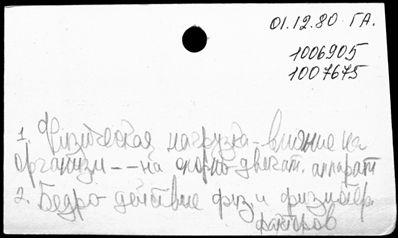 01.12.80 ГА.
1006905
1007675
1. Физическая нагрузка - влияние на
организм -- на опорно-двигат. аппарат
2. Бедро - действие физ. и физиотер.
факторов